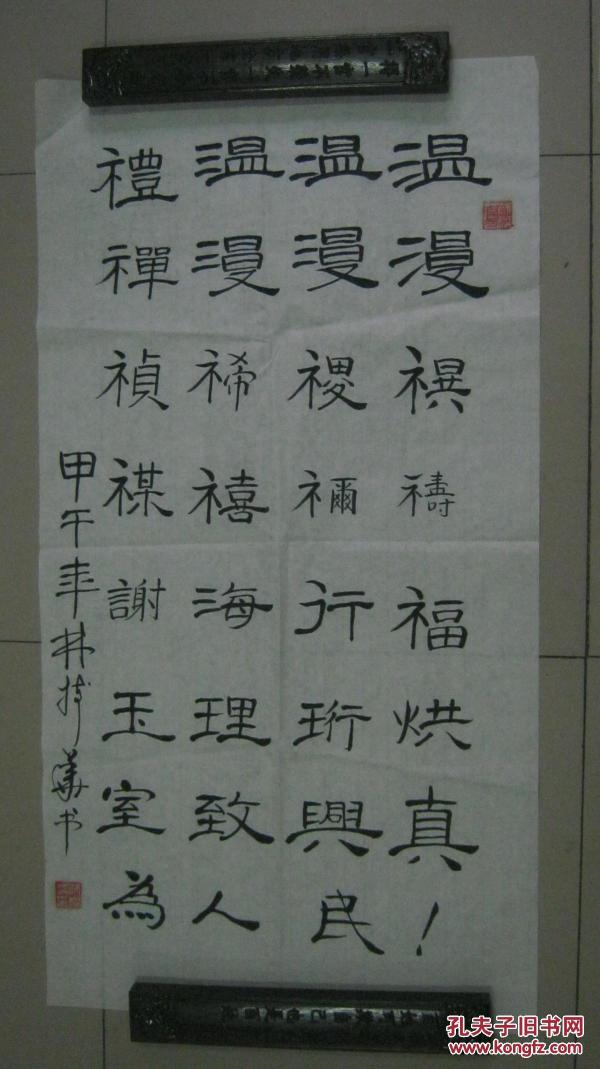 温漫禩禱福烘真！
温漫禝禰行珩興民
温漫福禧海理致人
禮禪禎禖謝玉室為
甲午年林持華书
孔夫子旧书网
www.kongfz.com